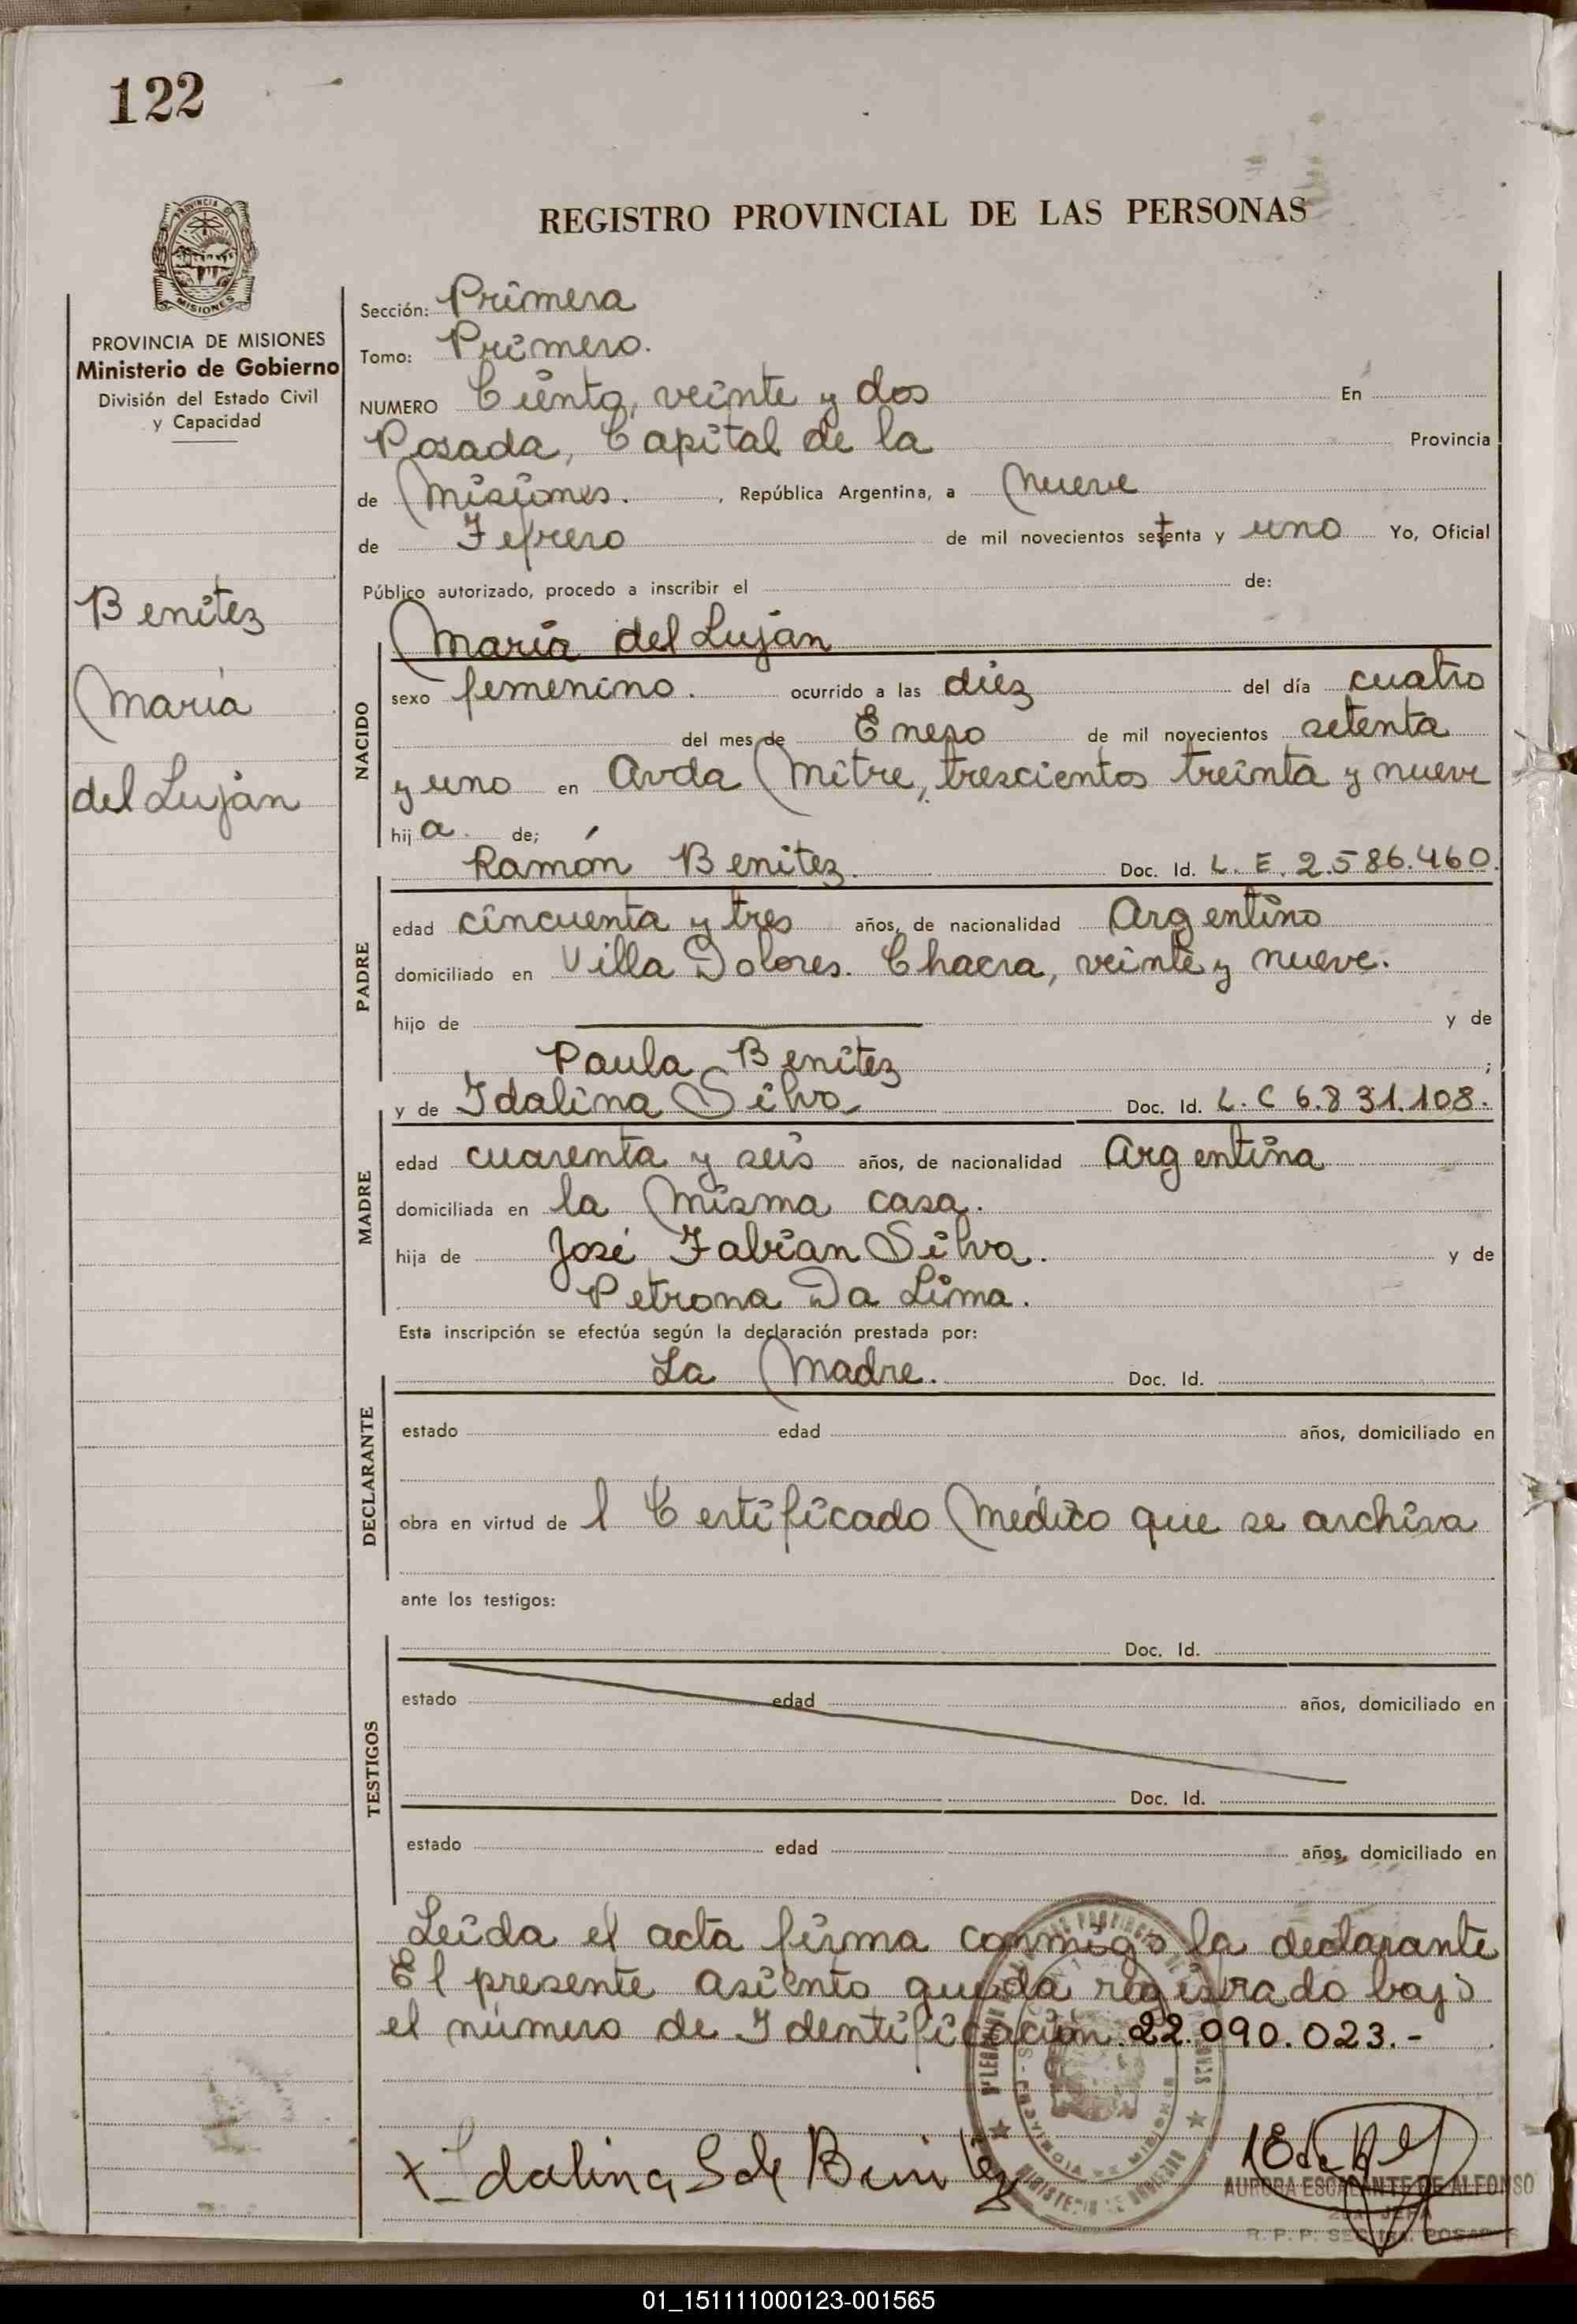 122
PROVINCIA DE
MISIONES
REGISTRO PROVINCIAL DE LAS PERSONAS
PROVINCIA DE MISIONES
Ministerio de Gobierno
División del Estado Civil
y Capacidad
Benitez
María
del Luján
Sección: Primera
Tomo: Primero.
NUMERO Ciento, veinte y dos En
Posada, Capital de la Provincia
de Misiones. , República Argentina, a nueve
de Febrero de mil novecientos setenta y uno Yo, Oficial
Público autorizado, procedo a inscribir el de:
María del Luján
NACIDO
sexo femenino. ocurrido a las diez del día cuatro
del mes de Enero de mil novecientos setenta
y uno en Avda Mitre, trescientos treinta y nueve
hij a. de;
Ramón Benitez. Doc. Id. L. E. 2.586.460.
PADRE
edad cincuenta y tres años, de nacionalidad Argentino
domiciliado en Villa Dolores. Chacra, veinte y nueve.
hijo de y de
Paula Benitez ;
y de Idalina Silva Doc. Id. L. C 6.831.108.
MADRE
edad cuarenta y seis años, de nacionalidad Argentina
domiciliada en la misma casa.
hija de José Fabian Silva. y de
Petrona Da Lima.
Esta inscripción se efectúa según la declaración prestada por:
La Madre. Doc. Id.
DECLARANTE
estado edad años, domiciliado en
obra en virtud de l Certificado Médico que se archiva
ante los testigos:
Doc. Id.
TESTIGOS
estado edad años, domiciliado en
Doc. Id.
estado edad años, domiciliado en
Leida el acta firma conmigo la declarante
El presente asiento queda registrado bajo
el número de Identificación 22.090.023.-
Idalina S de Benitez
AURORA ESCALANTE DE ALFONSO
JEFA
R. P. P.
01_151111000123-001565